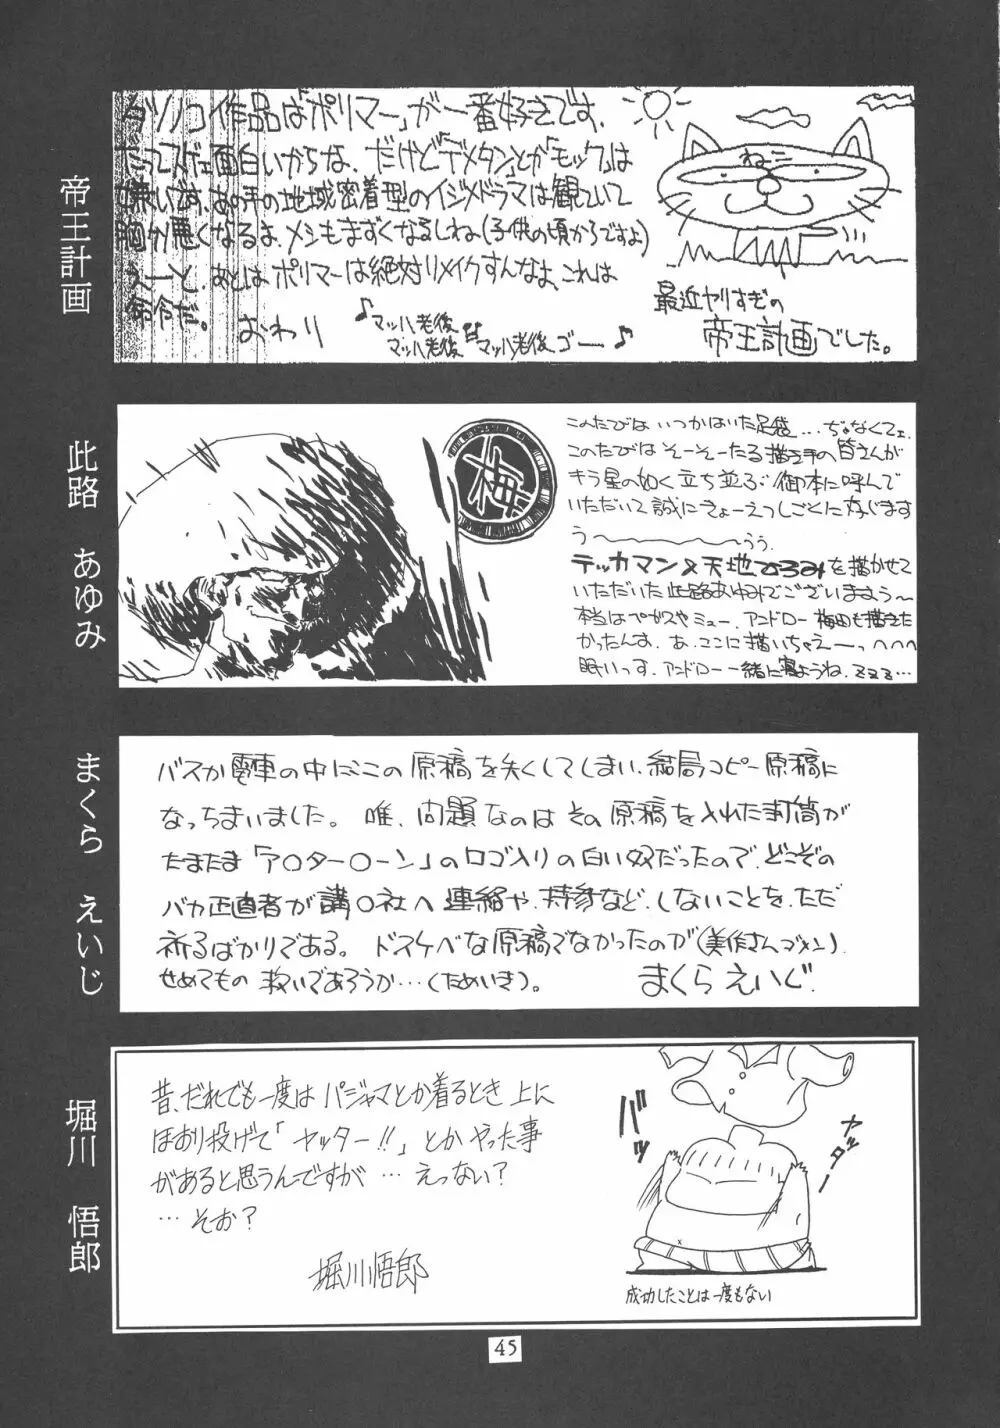 帝王計画
タツノコ作品は「ポリマー」が一番好きです、
だってスゲェ面白いからな、だけど「デメタン」とか「モック」は
嫌いです、あの手の地域密着型のイジメドラマは観ていて
胸が悪くなるよ、メシもまずくなるしね(子供の頃からですよ)
えーと、あとは、ポリマーは絶対リメイクすんなよ、これは
命令だ。
おわり
♪マッハ老後
マッハ老後
マッハ老後 ゴー ♪
ねこ
最近ヤリすぎの
帝王計画でした。
此路 あゆみ
梅
このたびは いつかはいた足袋…ぢゃなくてェ
このたびは そーそーたる描き手の皆さんが
キラ星の如く立ち並ぶ御本に呼んで
いただいて誠にきょーえつしごくに存じます
う〜〜〜〜〜うぅ
テッカマン×天地ひろみを描かせて
いただいた此路あゆみでございますぅ〜
本当はペガスやミュー、アンドロー梅田も描きた
かったんす。あ、ここに描いちゃえーっ へへへ
眠いっす。アンドロー一緒に寝ようね、ZZZ…
まくら えいじ
バスか電車の中にこの原稿を失くしてしまい、結局コピー原稿に
なっちまいました。唯、問題なのはその原稿を入れた封筒が
たまたま「ア〇ター〇ーン」のロゴ入りの白い奴だったので、どこぞの
バカ正直者が講〇社へ連絡や、持参など、しないことを、ただ
祈るばかりである。ドスケベな原稿でなかったのが(美作さんゴメン)
せめてもの救いであろうか…(ためいき)。
まくらえいじ
堀川 悟郎
昔、だれでも一度はパジャマとか着るとき上に
ほおり投げて「ヤッター!!」とかやった事
があると思うんですが…えっない?
…そお?
堀川悟郎
バッ
ヤッター
x
成功したことは一度もない
45